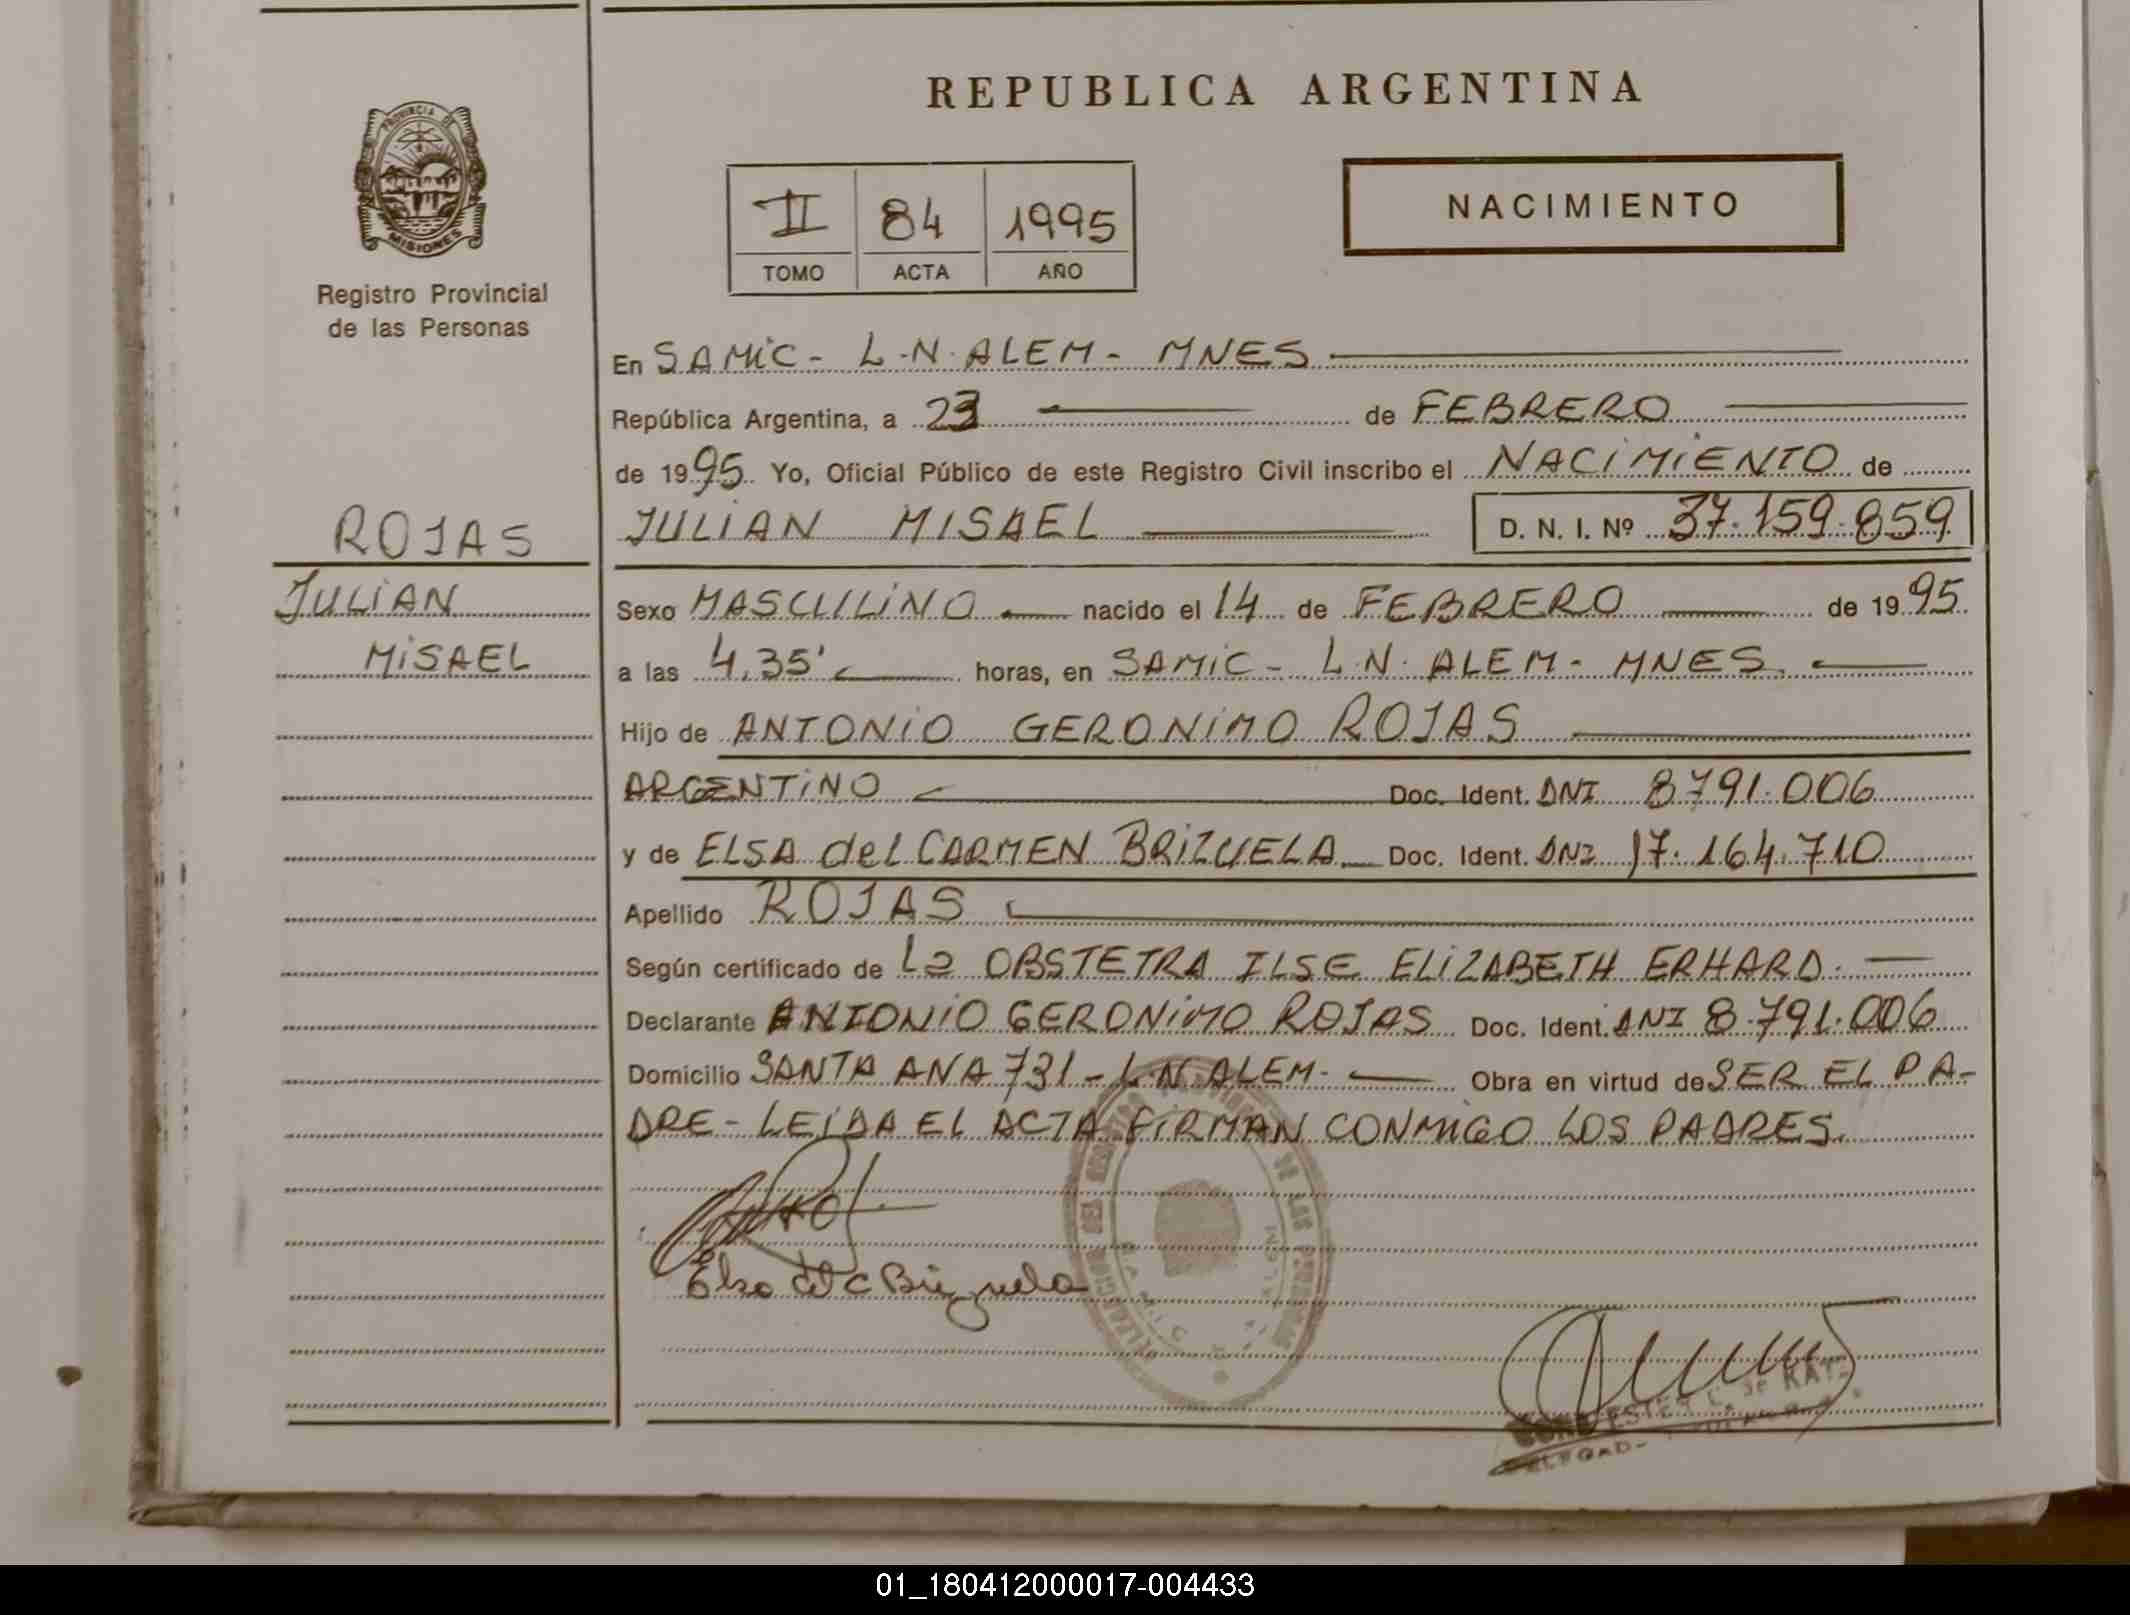 REPUBLICA ARGENTINA
PROVINCIA DE
MISIONES
Registro Provincial
de las Personas
II 84 1995
TOMO ACTA AÑO
NACIMIENTO
En SAMiC - L.N. ALEM - MNES
República Argentina, a 23 de FEBRERO
de 1995 Yo, Oficial Público de este Registro Civil inscribo el NACiMiENTO de
ROJAS
JULiAN MISAEL D. N. I. Nº 37.159.859
JULiAN
MiSAEL
Sexo MASCULiNO nacido el 14 de FEBRERO de 1995
a las 4.35' horas, en SAMiC - L.N. ALEM - MNES
Hijo de ANTONiO GERONiMO ROJAS
ARGENTiNO Doc. Ident. DNI 8791.006
y de ELSA del CARMEN BRiZUELA Doc. Ident. DNI 17.164.710
Apellido ROJAS
Según certificado de La OBSTETRA ILSE ELiZABETH ERHARD.
Declarante ANTONiO GERONiMO ROJAS Doc. Ident. DNI 8.791.006
Domicilio SANTA ANA 731 - L.N. ALEM - Obra en virtud de SER EL PA-
DRE - LEiDA EL ACTA FiRMAN CONMiGO LOS PADRES.
Elsa del C Brizuela
01_180412000017-004433